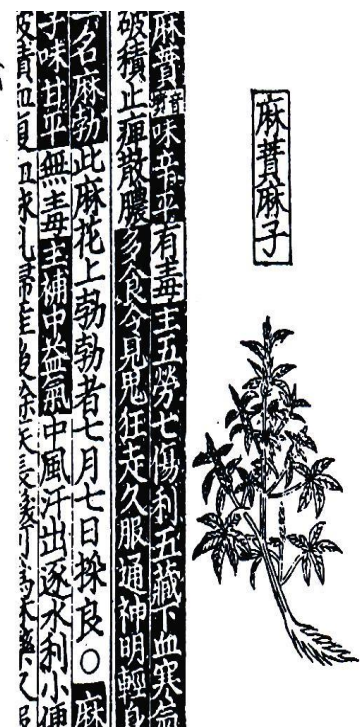 麻蕡麻子
麻蕡音墳味辛平有毒主五勞七傷利五藏下血寒氣
破積止痺散膿多食令見鬼狂走久服通神明輕身
一名麻勃此麻花上勃勃者七月七日採良○麻
子味甘平無毒主補中益氣中風汗出逐水利小便
破積血復血脉乳婦產後餘疾長髮